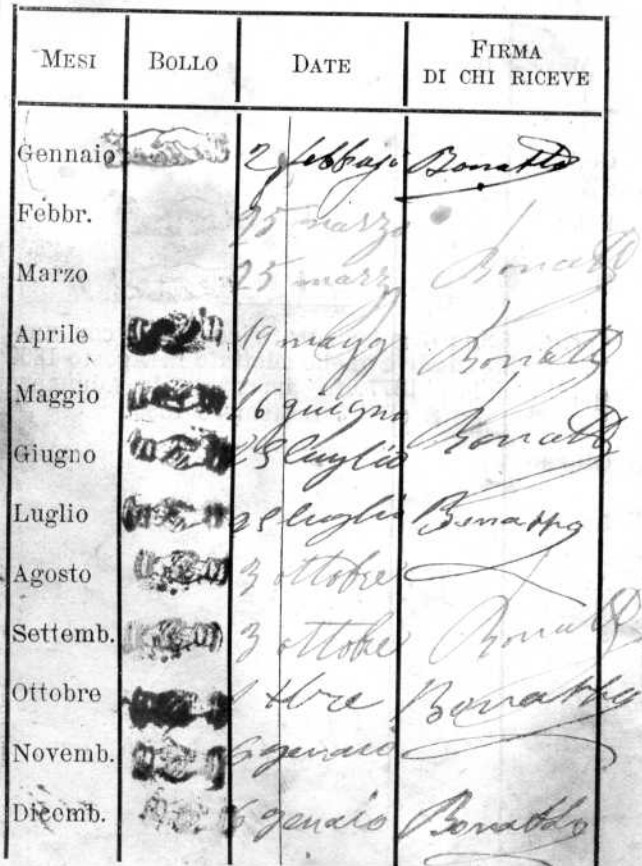 MESI BOLLO DATE FIRMA DI CHI RICEVE
Gennaio 2 febbrajo Bonatto
Febbr. 25 marzo
Marzo 25 marzo Bonatto
Aprile 19 magg Bonatto
Maggio 16 giugno
Giugno 25 luglio Bonatto
Luglio 25 luglio Bonatto
Agosto 3 ottobre
Settemb. 3 ottobre Bonatto
Ottobre Bonatto
Novemb. 6 gennaio
Dicemb. 6 genaio Bonatto